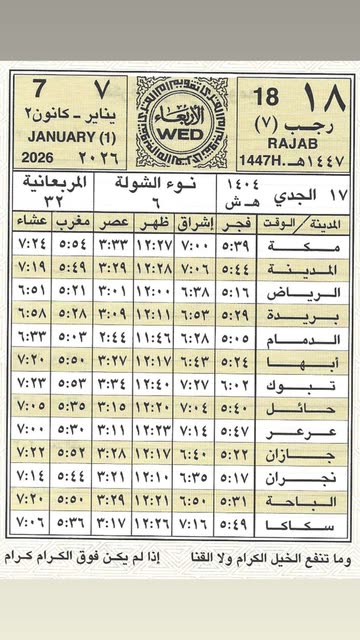 ٧ 7
يناير - كانون٢
JANUARY (1)
2026 ٢٠٢٦
الأربعاء
WED
١٨ 18
رجب (٧)
RAJAB
1447H. ١٤٤٧هـ
١٧ الجدي ١٤٠٤ هـ ش
نوء الشولة ٦
المربعانية ٣٢
المدينة / الوقت فجر إشراق ظهر عصر مغرب عشاء
مكة ٥:٣٩ ٧:٠٠ ١٢:٢٧ ٣:٣٣ ٥:٥٤ ٧:٢٤
المدينة ٥:٤٤ ٧:٠٦ ١٢:٢٨ ٣:٢٩ ٥:٤٩ ٧:١٩
الرياض ٥:١٦ ٦:٣٨ ١٢:٠٠ ٣:٠١ ٥:٢١ ٦:٥١
بريدة ٥:٢٩ ٦:٥٣ ١٢:١١ ٣:٠٩ ٥:٢٨ ٦:٥٨
الدمام ٥:٠٥ ٦:٢٨ ١١:٤٦ ٢:٤٤ ٥:٠٣ ٦:٣٣
أبها ٥:٢٤ ٦:٤٣ ١٢:١٧ ٣:٢٧ ٥:٥٠ ٧:٢٠
تبوك ٦:٠٢ ٧:٢٧ ١٢:٤٠ ٣:٣٤ ٥:٥٣ ٧:٢٣
حائل ٥:٤٠ ٧:٠٤ ١٢:٢٠ ٣:١٥ ٥:٣٥ ٧:٠٥
عرعر ٥:٤٧ ٧:١٤ ١٢:٢٣ ٣:١١ ٥:٣٠ ٧:٠٠
جازان ٥:٢٢ ٦:٤٠ ١٢:١٧ ٣:٢٨ ٥:٥٢ ٧:٢٢
نجران ٥:١٧ ٦:٣٥ ١٢:١٠ ٣:٢١ ٥:٤٤ ٧:١٤
الباحة ٥:٣١ ٦:٥٠ ١٢:٢١ ٣:٢٩ ٥:٥٠ ٧:٢٠
سكاكا ٥:٤٩ ٧:١٦ ١٢:٢٦ ٣:١٧ ٥:٣٦ ٧:٠٦
وما تنفع الخيل الكرام ولا القنا إذا لم يكن فوق الكرام كرام